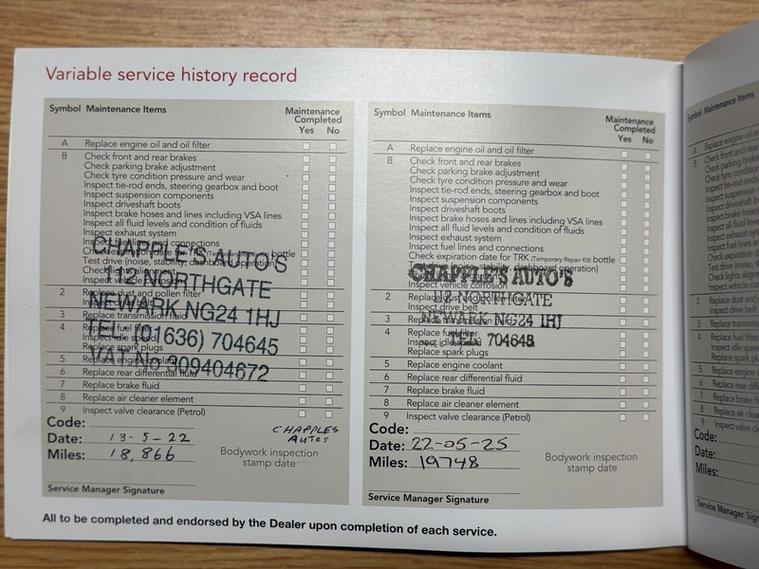 Variable service history record
Symbol Maintenance Items
Maintenance
Completed
Yes No
A Replace engine oil and oil filter
B Check front and rear brakes
Check parking brake adjustment
Check tyre condition pressure and wear
Inspect tie-rod ends, steering gearbox and boot
Inspect suspension components
Inspect driveshaft boots
Inspect brake hoses and lines including VSA lines
Inspect all fluid levels and condition of fluids
Inspect exhaust system
bottle
Test drive (noise, stability, dashboard operation)
2 Replace dust and pollen filter
3 Replace transmission fluid
4 Replace fuel
Replace spark plugs
5 Replace engine coolant
6 Replace rear differential fluid
7 Replace brake fluid
8 Replace air cleaner element
9 Inspect valve clearance (Petrol)
CHAPPLE'S AUTO'S
112 NORTHGATE
NEWARK NG24 1HJ
TEL: (01636) 704645
VAT.No 309404672
Code:
Date: 13-5-22
Miles: 18,866
CHAPPLES
AUTOS
Bodywork inspection
stamp date
Service Manager Signature
Symbol Maintenance Items
Maintenance
Completed
Yes No
A Replace engine oil and oil filter
B Check front and rear brakes
Check parking brake adjustment
Check tyre condition pressure and wear
Inspect tie-rod ends, steering gearbox and boot
Inspect suspension components
Inspect driveshaft boots
Inspect brake hoses and lines including VSA lines
Inspect all fluid levels and condition of fluids
Inspect exhaust system
Inspect fuel lines and connections
Check expiration date for TRK (Temporary Repair Kit) bottle
Inspect vehicle corrosion
2
Inspect drive belt
3
4 Replace fuel
Replace spark plugs
5 Replace engine coolant
6 Replace rear differential fluid
7 Replace brake fluid
8 Replace air cleaner element
9 Inspect valve clearance (Petrol)
CHAPPLE'S AUTO'S
112 NORTHGATE
NEWARK NG24 1HJ
704645
Code:
Date: 22-05-25
Miles: 19748
Bodywork inspection
stamp date
Service Manager Signature
All to be completed and endorsed by the Dealer upon completion of each service.
Symbol Maintenance Items
A Replace engine oil
B Check front and rear
Check parking brake
Check tyre condition
Inspect tie-rod ends,
Inspect suspension
Inspect driveshaft
Inspect brake hoses
Inspect all fluid
Inspect exhaust
Inspect fuel lines
Check expiration
Test drive (noise,
Check lights
Inspect vehicle
2 Replace dust and
Inspect drive belt
3 Replace
4 Replace fuel filter
Inspect idle
Replace spark
5 Replace engine
6 Replace rear
7 Replace brake
8 Replace air
9 Inspect valve
Code:
Date:
Miles:
Service Manager